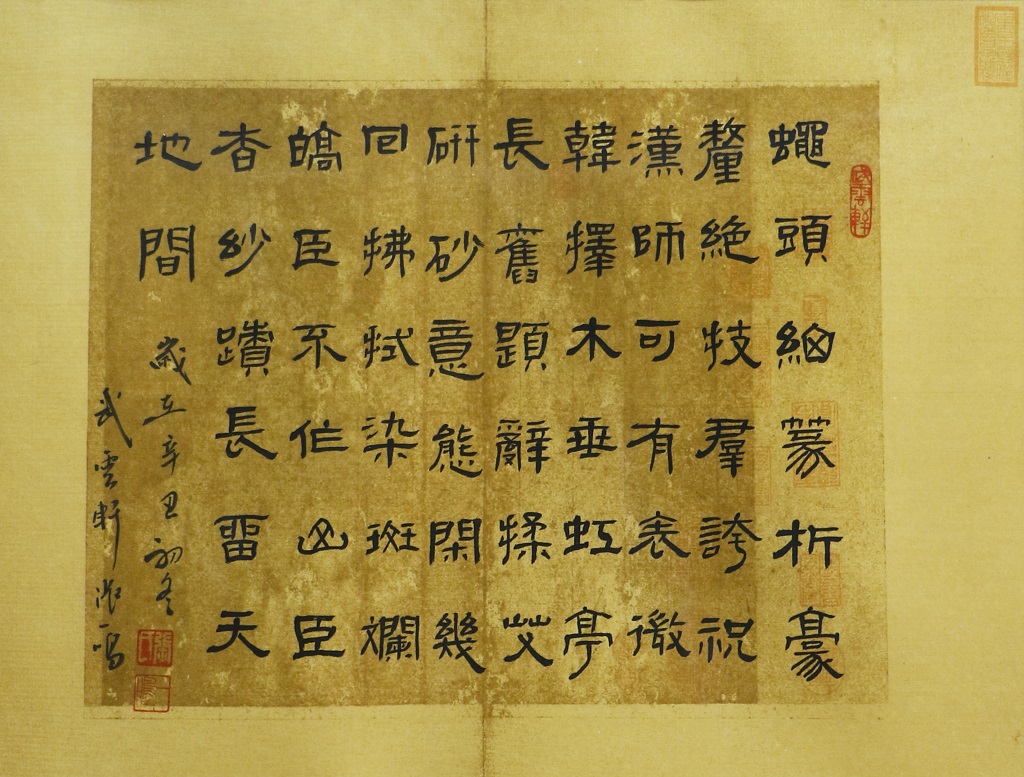 蠅頭細篆析豪
釐絶技羣誇祝
漢師可有表徵
韓擇木垂虹亭
長舊題辭揉艾
研砂意態閑幾
回拂拭染斑斕
皜臣不作山臣
杳玅蹟長留天
地間
歲在辛丑初冬
武雲軒張一鳴
武雲軒